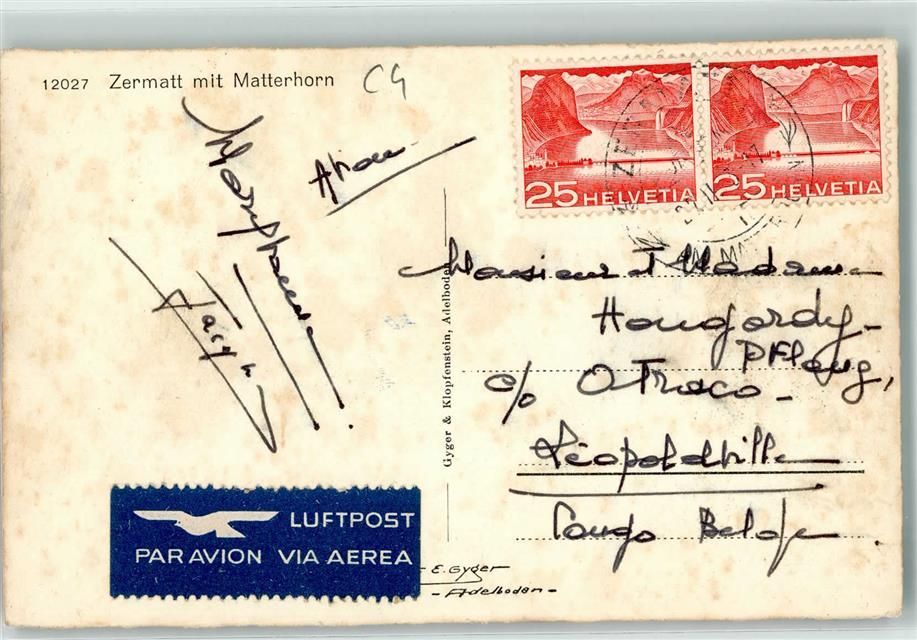 12027 Zermatt mit Matterhorn
C4
Avion
25 HELVETIA
25 HELVETIA
Monsieur et Madame
Hougardy-
Pflaug,
c/o Otraco -
Léopoldville
Congo Belge
Gyger & Klopfenstein, Adelboden
LUFTPOST
PAR AVION VIA AEREA
E. Gyger
- Adelboden -